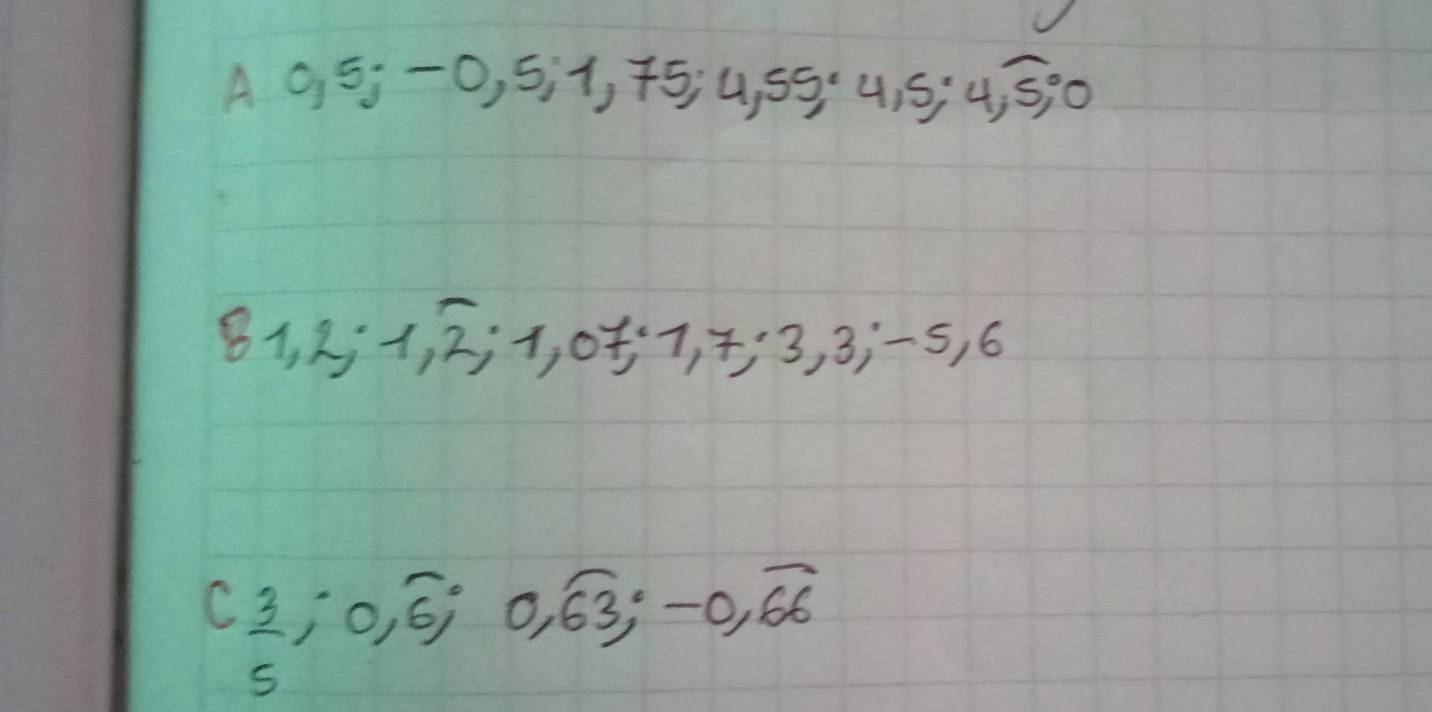 A 0,5; -0,5; 1,75; 4,55; 4,5; 4,5̑; 0
B 1,2; 1,2̑; 1,07; 1,7; 3,3; -5,6
C 3/5; 0,6̑; 0,6͡3; -0,6͡6